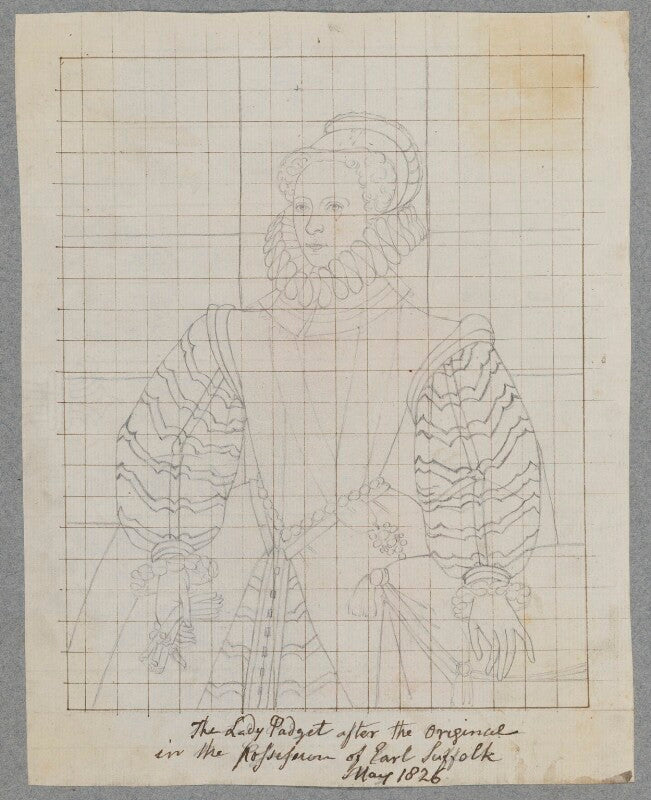 The Lady Padget after the original
in the Possession of Earl Suffolk
May 1826